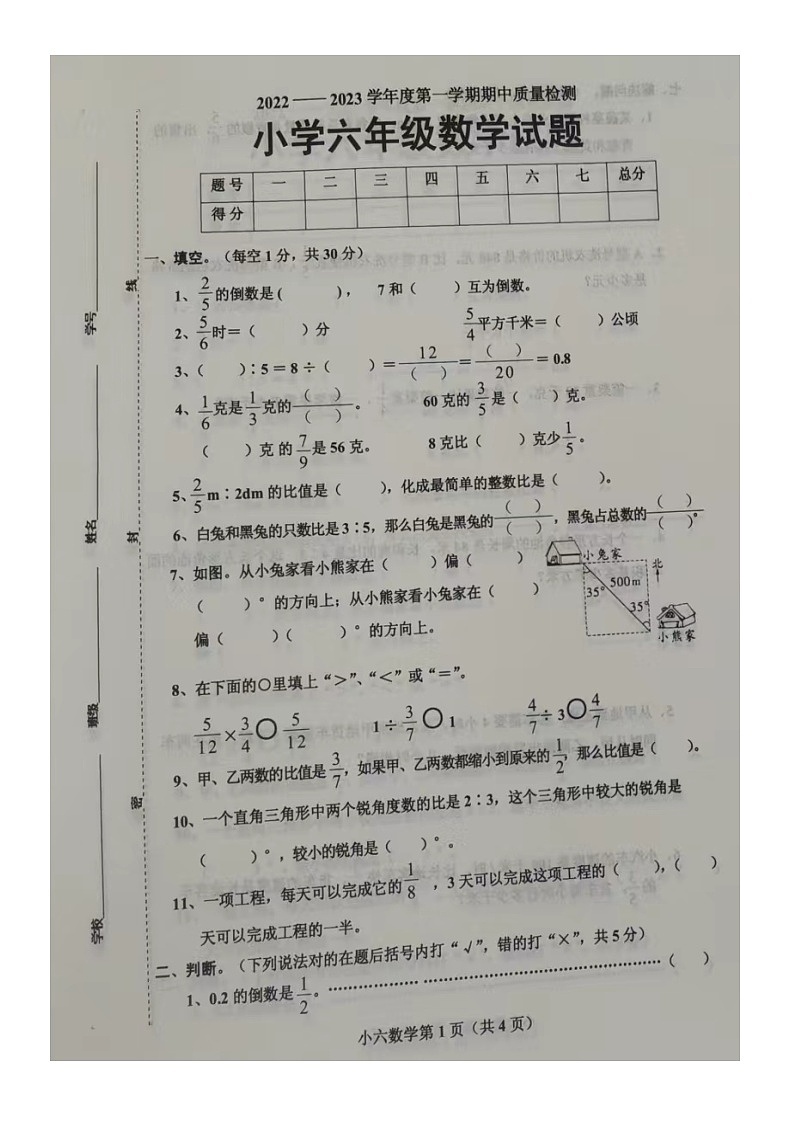 2022 —— 2023 学年度第一学期期中质量检测
小学六年级数学试题
题号 一 二 三 四 五 六 七 总分
得分
一、填空。（每空1分，共30分）
1、2/5的倒数是（ ）， 7和（ ）互为倒数。
2、5/6时=（ ）分 5/4平方千米=（ ）公顷
3、（ ）∶5＝8÷（ ）＝12/（ ）＝（ ）/20＝0.8
4、1/6克是1/3克的（ ）/（ ）。 60克的3/5是（ ）克。
（ ）克的7/9是56克。 8克比（ ）克少1/5。
5、2/5m∶2dm的比值是（ ），化成最简单的整数比是（ ）。
6、白兔和黑兔的只数比是3∶5，那么白兔是黑兔的（ ）/（ ），黑兔占总数的（ ）/（ ）。
7、如图。从小兔家看小熊家在（ ）偏（ ）
（ ）°的方向上；从小熊家看小兔家在（ ）
偏（ ）（ ）°的方向上。
小兔家
北
500m
35°
35°
小熊家
8、在下面的○里填上“＞”、“＜”或“＝”。
5/12×3/4○5/12 1÷3/7○1 4/7÷3○4/7
9、甲、乙两数的比值是3/7，如果甲、乙两数都缩小到原来的1/2，那么比值是（ ）。
10、一个直角三角形中两个锐角度数的比是2∶3，这个三角形中较大的锐角是
（ ）°，较小的锐角是（ ）°。
11、一项工程，每天可以完成它的1/8，3天可以完成这项工程的（ ），（ ）
天可以完成工程的一半。
二、判断。（下列说法对的在题后括号内打“√”，错的打“×”，共5分）
1、0.2的倒数是1/2。………………………………………………（ ）
小六数学第1页（共4页）
学校
班级
姓名
学号
密
封
线